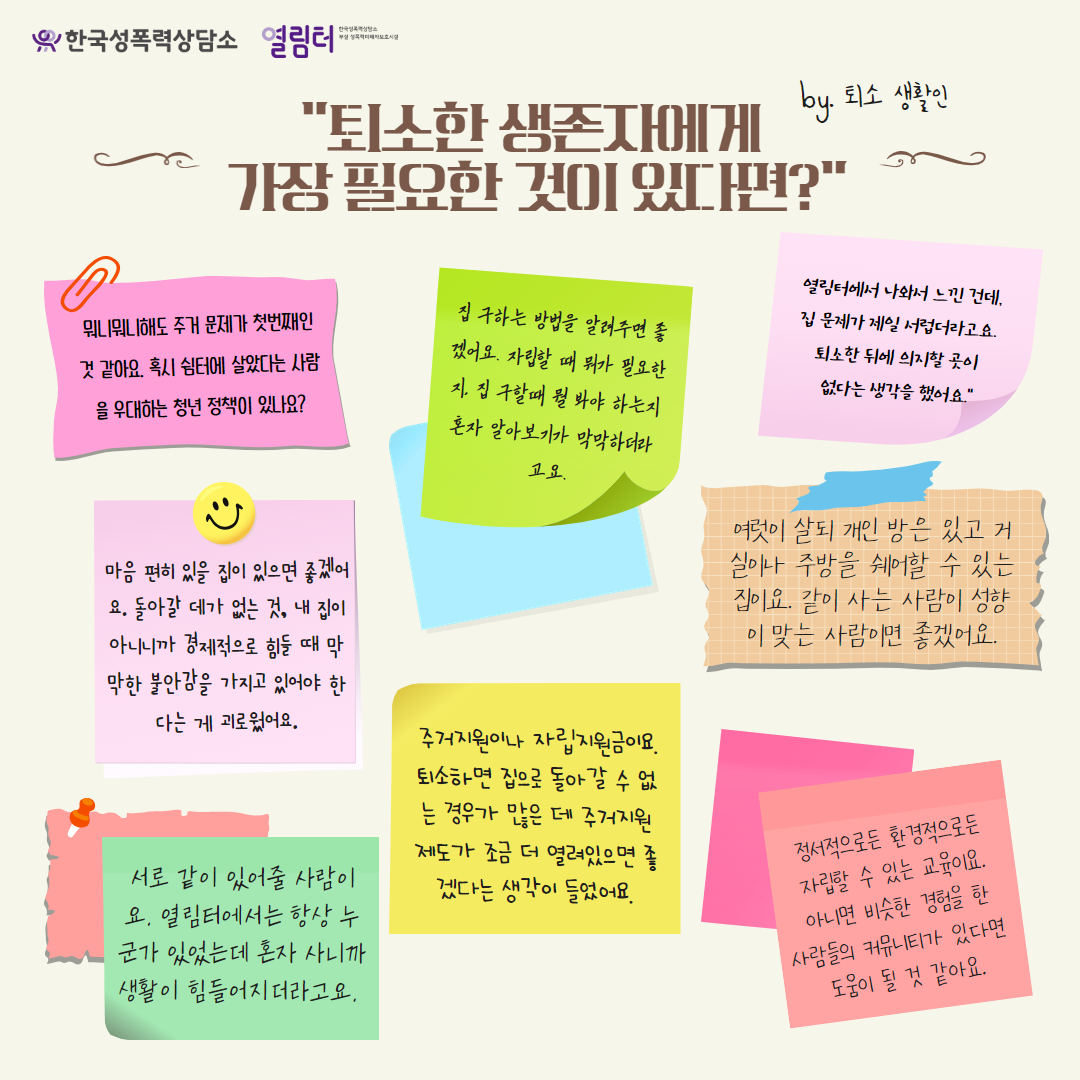 한국성폭력상담소
열림터
한국성폭력상담소
부설 성폭력피해자보호시설
by. 퇴소 생활인
"퇴소한 생존자에게
가장 필요한 것이 있다면?"
뭐니뭐니해도 주거 문제가 첫번째인
것 같아요. 혹시 쉼터에 살았다는 사람
을 우대하는 청년 정책이 있나요?
집 구하는 방법을 알려주면 좋
겠어요. 자립할 때 뭐가 필요한
지. 집 구할때 뭘 봐야 하는지
혼자 알아보기가 막막하더라
고요.
열림터에서 나와서 느낀 건데,
집 문제가 제일 서럽더라고요.
퇴소한 뒤에 의지할 곳이
없다는 생각을 했어요."
마음 편히 있을 집이 있으면 좋겠어
요. 돌아갈 데가 없는 것, 내 집이
아니니까 경제적으로 힘들 때 막
막한 불안감을 가지고 있어야 한
다는 게 괴로웠어요.
여럿이 살되 개인 방은 있고 거
실이나 주방을 쉐어할 수 있는
집이요. 같이 사는 사람이 성향
이 맞는 사람이면 좋겠어요.
주거지원이나 자립지원금이요.
퇴소하면 집으로 돌아갈 수 없
는 경우가 많은 데 주거지원
제도가 조금 더 열려있으면 좋
겠다는 생각이 들었어요.
서로 같이 있어줄 사람이
요. 열림터에서는 항상 누
군가 있었는데 혼자 사니까
생활이 힘들어지더라고요.
정서적으로든 환경적으로든
자립할 수 있는 교육이요.
아니면 비슷한 경험을 한
사람들의 커뮤니티가 있다면
도움이 될 것 같아요.